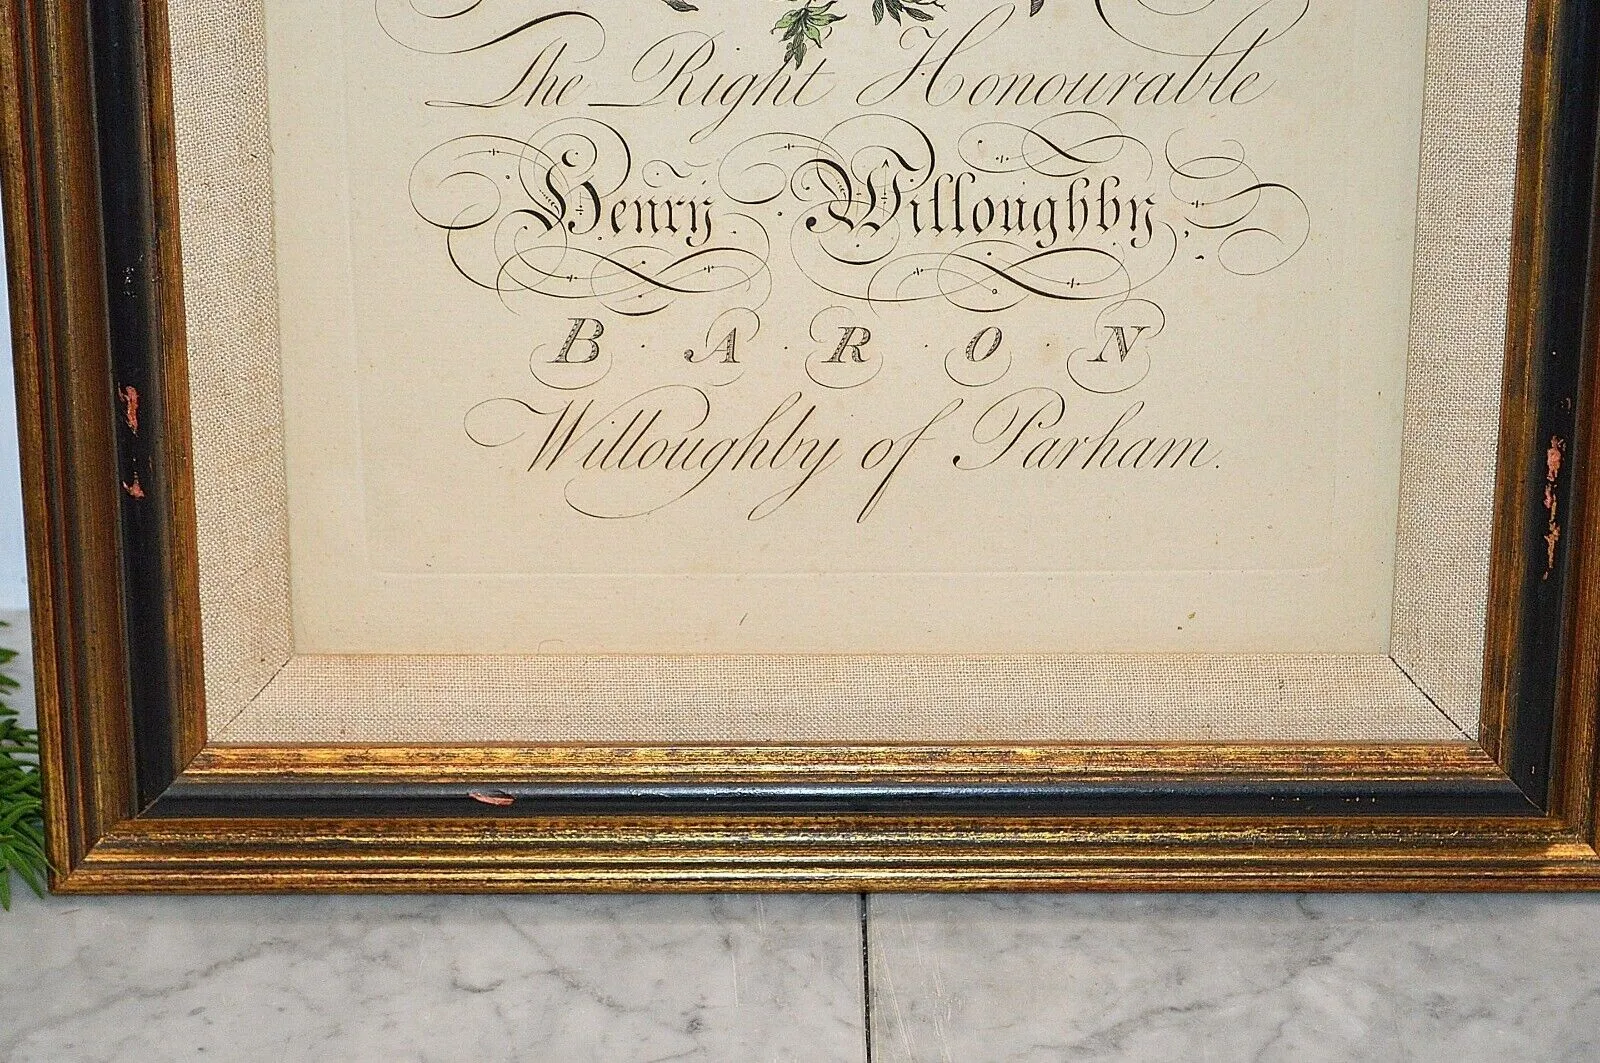 The Right Honourable
Henry Willoughby
BARON
Willoughby of Parham.